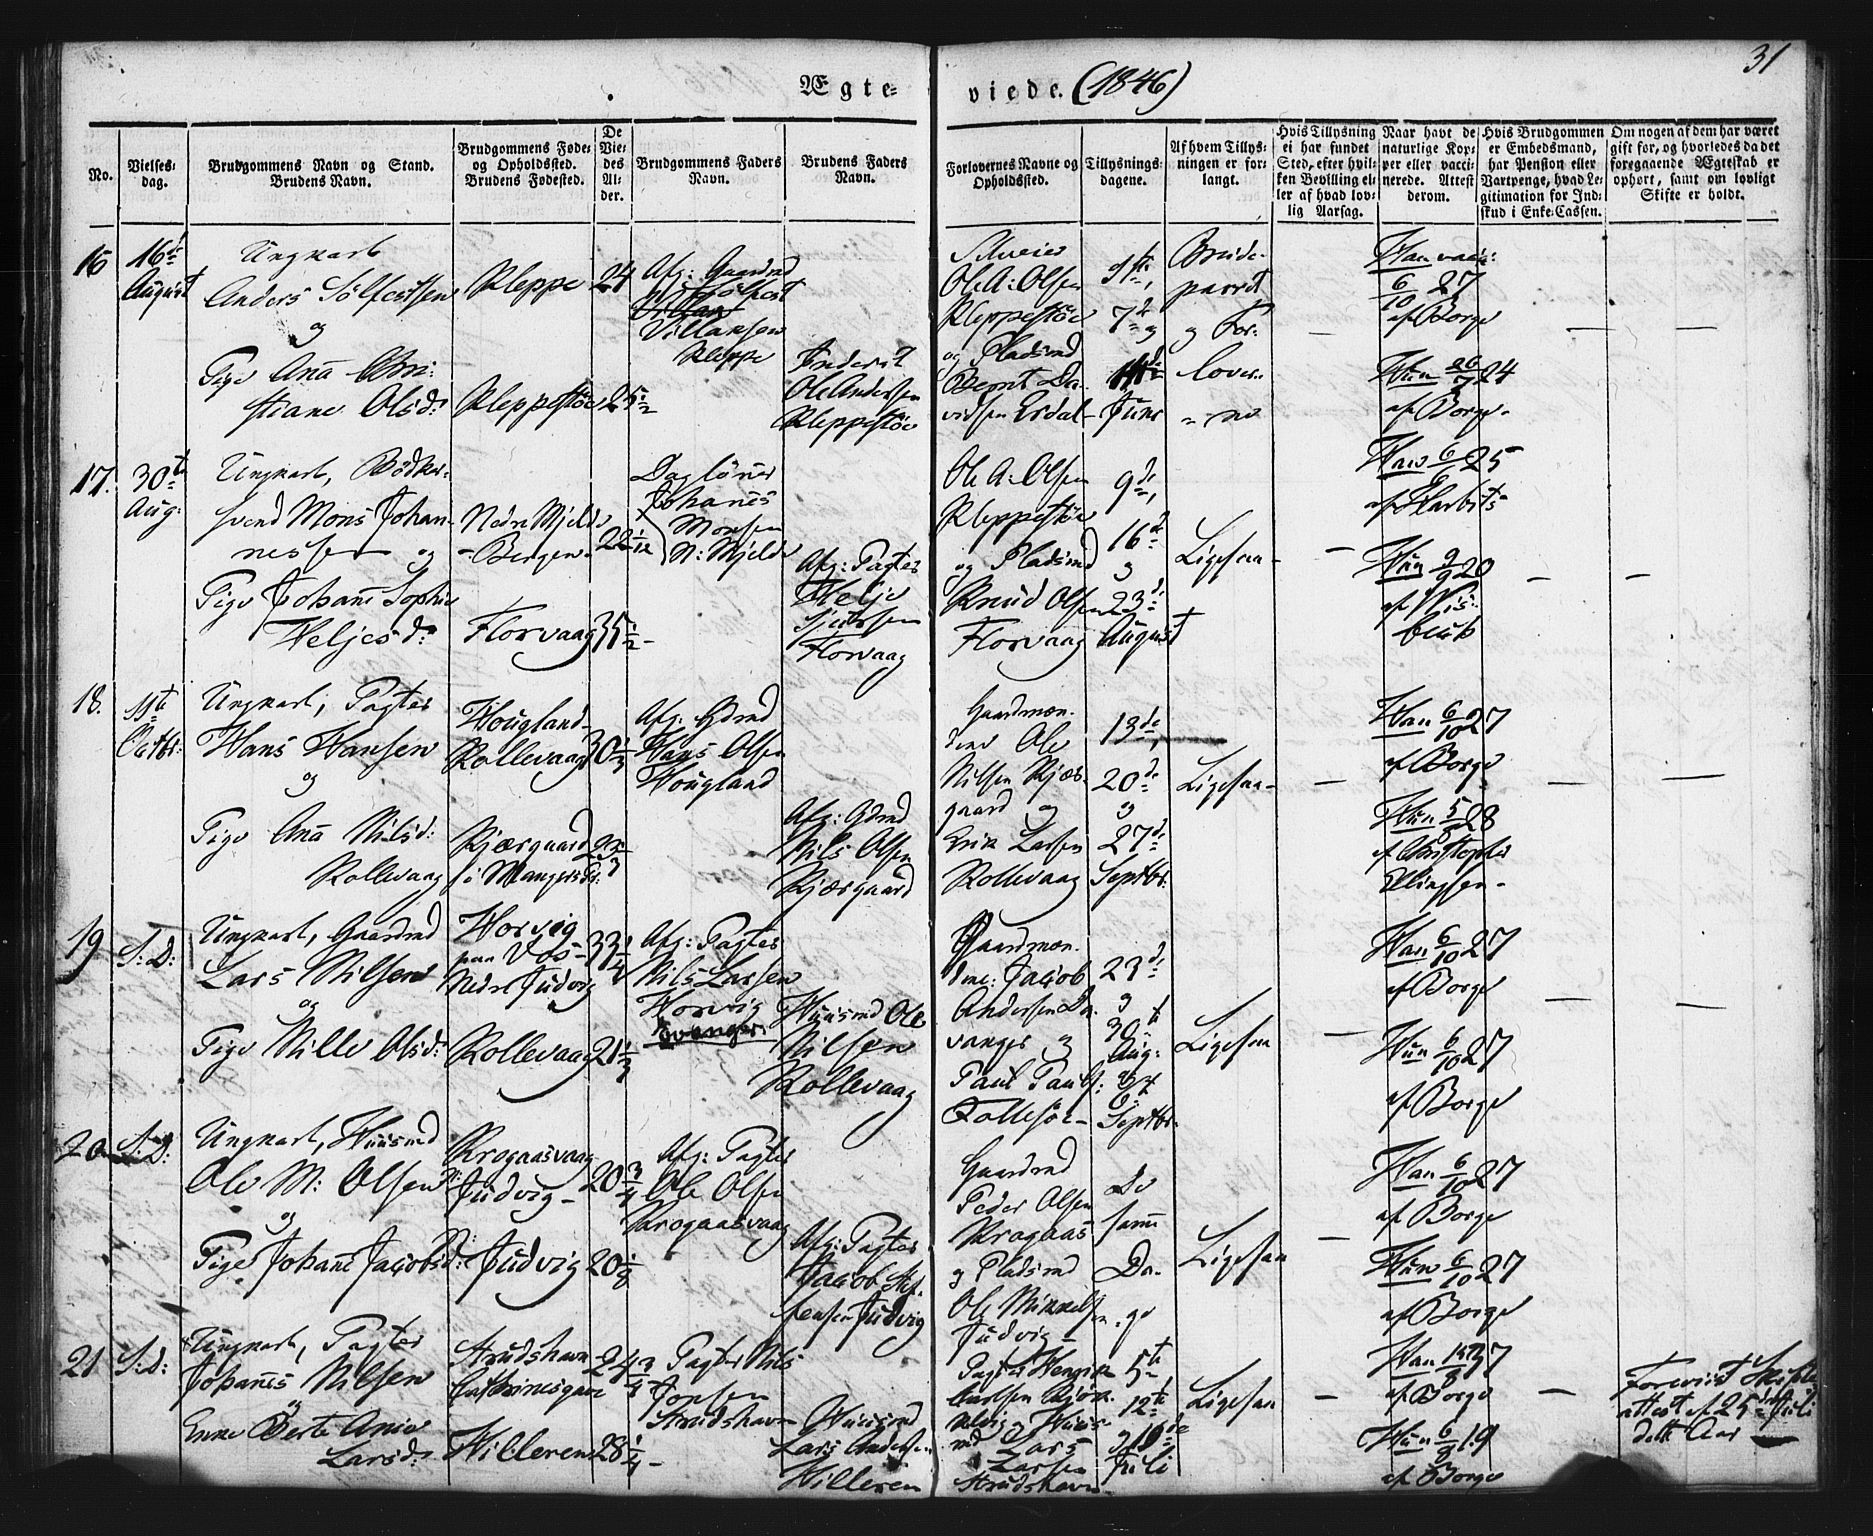 31
Ægte-
viede. (1846)
No.
Vielses-
dag.
Brudgommens Navn og Stand.
Brudens Navn.
Brudgommens Føde-
og Opholdssted.
Brudens Fødested.
De
Vie-
des
Al-
der.
Brudgommens Faders
Navn.
Brudens Faders
Navn.
Forlovernes Navne og
Opholdssted.
Tillysnings-
dagene.
Af hvem Tillys-
ningen er for-
langt.
Hvis Tillysning
ei har fundet
Sted, efter hvil-
ken Bevilling el-
ler af hvad lov-
lig Aarsag.
Naar havt de
naturlige Kop-
per eller vacci-
nerede. Attest
derom.
Hvis Brudgommen
er Embedsmand,
har Pension eller
Vartpenge, hvad Le-
gitimation for Ind-
skud i Enke-Cassen.
Om nogen af dem har været
gift før, og hvorledes da det
foregaaende Ægteskab er
ophørt, samt om lovligt
Skifte er holdt.
16
16de
August
Ungkarl
Anders Sølfestsen
og
Pige Ana Chri-
stiane Olsd:
Kleppe
Kleppestöe
24
25½
Afg: Gaardmd
Sølfest
Villumsen
Kleppe
Ole Andersen
Kleppestöe
Ole A: Olsen
Kleppestöe
og Pladsmd
Bernt Da-
vidsen Erdal
7de og
14de
Juni
Brude-
parret
og For-
lover-
ne
Han vacc:
6/10 27
af Borge
Hun 26/7 24
af Borge
17.
30te
Aug:
Ungkarl, Bödker-
svend Mons Johan-
nessen og
Pige Johane Sophie
Heljesd:
Nedre Mjelde
Bergen
Florvaag
22 1/12
35½
Daglönner
Johanes
Monsen
N: Mjelde
Afg: Pagter
Helje
Sjursen
Florvaag
Ole A: Olsen
Kleppestöe
og Pladsmd
Knud Olsen
Florvaag
9de,
16de
og
23de
August
Ligesaa
Han 6/6 25
af Harbitz
Hun 9/9 20
af Wis-
beck
18.
11te
Octbr:
Ungkarl, Pagter
Hans Hansen
og
Pige Ana Nilsd:
Rollevaag
Hougland
Rollevaag
Kjærgaard
i Mangers
30⅓
Afg. Gdmd
Hans Olsen
Hougland
Afg: Gdmd
Nils Olsen
Kjærgaard
Gaardmæn-
dene Ole
Nilsen Kjær-
gaard og
Erik Larsen
Rollevaag
13de,
20de
og
27de
Septbr:
Ligesaa
Han 6/10 27
af Borge
Hun 5/8 28
af Christopher
Ellingsen
19
S: D:
Ungkarl, Gaardmd
Lars Nilsen
og
Pige Nille Olsd:
Horvig
paa Vos
Nedre Judvig
Rollevaag
33¼
21⅓
Afg: Pagter
Nils Larsen
Horvig
Evanger.
Huusmd Ole
Nilsen
Rollevaag
Gaardmæn-
dene: Jacob
Andersen Da-
vanger og
Paul Pauls:
Follesöe
23de
og
30te
Aug:
6te
Septbr:
Ligesaa
Han 6/10 27
af Borge
Hun 6/10 27
af Borge
20
S: D:
Ungkarl, Huusmd
Ole M: Olsen
og
Pige Johane Jacobsd:
Krogaasvaag
Judvig
Judvig
20¾
20⅛
Afg: Pagter
Ole Olsen
Krogaasvaag
Afg: Pagter
Jacob Stef-
fensen Judvig
Gaardmd
Peder Olsen
Krogaas
og Pladsmd
Ole Mikkelsen
Judvig
De
samme
Da-
ge
Ligesaa
Han 6/10 27
af Borge
Hun 6/10 27
af Borge
21
S: D:
Ungkarl, Pagter
Johanes Nilsen
og
Enke Berte Anne
Larsd:
Strudshavn
Hilleren
24¾
28¼
Pagter Nils
Jonsen
Strudshavn
Huusmd
Lars Andersen
Hilleren
Pagter Henrik
og Huus-
md Lars
Larsen
Strudshavn
5te
12te
og 19de
Juli
Ligesaa
af Borge
Hun 6/8 19
af Borge
Foreviist Skifte-
attest af 25de Juli
dette Aar